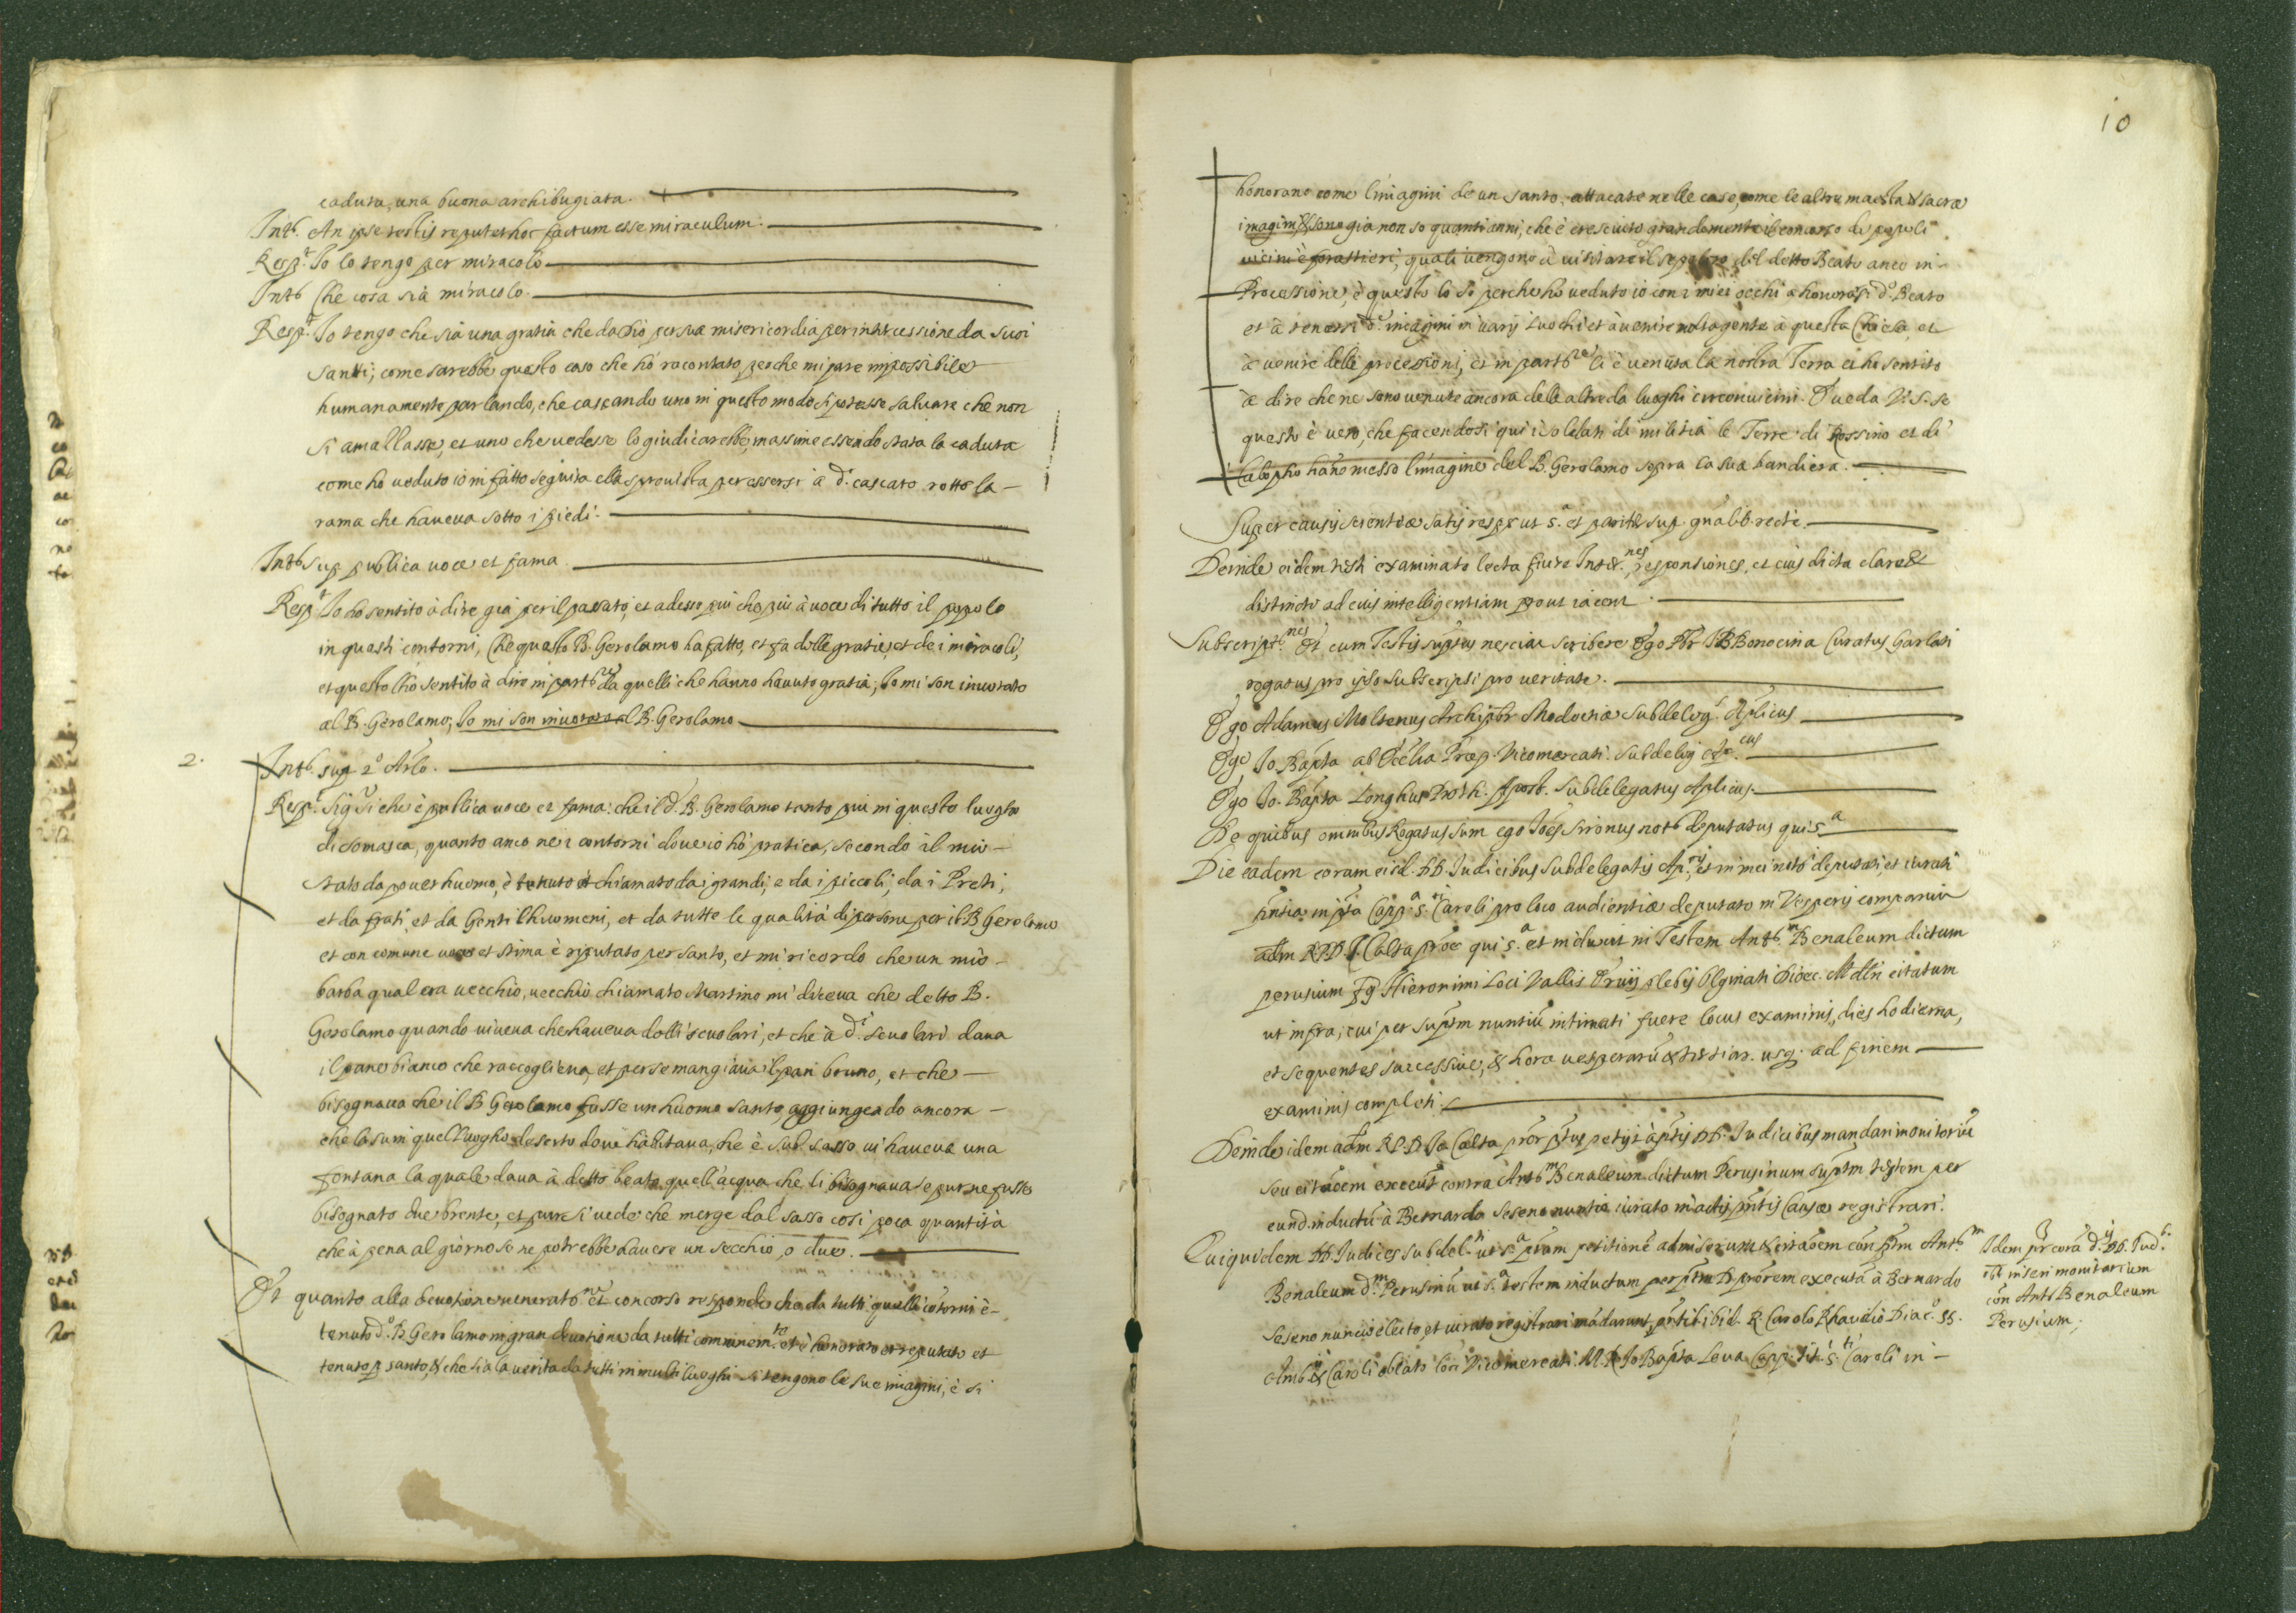 caduta, una buona archibugiata.
Int. An ipse testis reputet hoc factum esse miraculum.
Resp.t Io lo tengo per miracolo
Int. Che cosa sia miracolo.
Resp.t Io tengo che sia una gratia che dà Dio per sua misericordia per intercessione da suoi
santi, come sarebbe questo caso che hò racontato, perche mi pare impossibile
humanamente parlando, che cascando uno in questo modo si potesse salvare che non
si amallasse, et uno che vedesse lo giudicarebbe, massime essendo stata la caduta
come hò veduto io in fatto seguita alla sprovista per essersi à d.o cascato rotto la
rama che haveva sotto i piedi.
Int. sup. publica voce et fama
Resp.t Io hò sentito à dire già per il passato, et adesso più che più à voce di tutto il popolo
in questi contorni, che questo B. Gerolamo ha fatto, et fa delle gratie, et de i miracoli,
et questo l'hò sentito à dire in part.re da quelli che hanno havuto gratia, Io mi son invotato
al B. Gerolamo, Io mi son invotato al B. Gerolamo
2.
Int. sup. 2.o Art.lo.
Resp.t Sig.r Si che è publica voce et fama: che il d.o B. Gerolamo tanto più in questo luogho
di Somasca, quanto anco nei contorni dove io hò pratica, secondo il mio
stato da pover huomo, è tenuto et chiamato da i grandi, e da i piccoli, da i Preti,
et da frati, et da Gentilhuomeni, et da tutte le qualità di persone per il B. Gerolamo
et con comune voce et stima è riputato per santo, et mi ricordo che un mio
barba qual era vecchio, vecchio chiamato Martino mi diceva che detto B.
Gerolamo quando viveva che haveva delli scuolari, et che à d.i scuolari dava
il pane bianco che raccoglieva, et per se mangiava il pan bruno, et che
bisognava che il B. Gerolamo fusse un huomo santo, aggiungendo ancora
che lasù in quel luogho deserto dove habitava, che è sul sasso vi haveva una
fontana la quale dava à detto beato quell'acqua che li bisognava se pur ne fusse
bisognato due brente, et pure si vede che merge dal sasso così poca quantità
che à pena al giorno se ne potrebbe havere un secchio, o due.
Et quanto alla devotione venerat.ne et concorso responde che da tutti quelli cōtorni è
tenuto d.o B. Gerolamo in gran devotione da tutti communem.te et è honorato et reputato et
tenuto p santo, et che sia la verita da tutti in molti luoghi si tengono le sue imagini, è si
10
honorano come l'imagini de un santo, attacate nelle case, come le altre maestà et sacre
imagini, et sono già non so quanti anni, che è cresciuto grandemente il concorso de popoli
vicini è forastieri, quali vengono à visitare il sepolcro del detto Beato anco in
Processione, è questo lo so perche hò veduto io con i miei occhi a honorarsi d.o Beato
et à tenersi d.e imagini in varij luochi et à venire molta gente à questa Chiesa, et
à venire delle processioni, et in part.re li è venuta la nostra Terra et ho sentito
à dire che ne sono venute ancora delle altre da luoghi circonvicini. Et veda V. S. se
questo è vero, che facendosi qui i soldati di militia le Terre di Rossino et di
Calopho hano messo l'imagine del B. Gerolamo sopra la sua bandiera.
Super causis scientiæ satis resp.t ut s.a et pariter sup. gnalib. recte
Deinde eidem testi examinato lecta fuere Int.nes, responsiones, et eius dicta clare et
distincte ad eius intelligentiam prout iacent.
Subscript.nes Et cum Testis suptus nesciat scribere Ego Pbr IB Bonocina Curatus Garlati
rogatus pro ipso subscripsi pro veritate.
Ego Adamus Moltenus Archipbr Modoetiæ subdeleg.s Aplicus
Ego Io. Bapta ab Ecclia Præp. Vicomercati subdeleg.
Ego Io. Bapta Longhus Proth. Apost. Subdelegatus Aplicus
De quibus omnibus Rogatus sum ego Ioēs Sironus not. deputatus qui s.a
Die eadem coram eisd. DD. Iudicibus subdelegatis Ap.cis, et in mei notō deputati, et iurati
pntia in pta Capp.a s.ti Caroli pro loco audientiæ deputato in Vesperis comparuit
adm R.P.D. I. Calta pror qui s.a et induxit in Testem Ant.m Benaleum dictum
perusium fq. Hieronimi Loci Vallis Ervij plebis Olginati Dioec. Mdlni citatum
ut infra, cui per suptm nuntiū intimati fuere locus examinis, dies hodierna,
et sequentes successive, et hora vesperarū et tertiar. usq. ad finem
examinis completi.
Deinde idem adm R.P.D. Io Calta pror ptus petijt à ptis DD. Iudicibus mandari monitoriū
seu citāoem execut contra Ant.m Benaleum dictum Perusinum suptm testem per
eund. inductū à Bernardo Seseno nuntio iurato in actis pntis Causæ registrari.
Quiquidem DD. Iudices subdel.ti ut s.a ptam petitionē admiserunt et citāoem con ptm Ant.m
Benaleum d.m Perusinū ut s.a testem inductum per ptm D. prorem executā à Bernardo
Seseno nuncio electo, et iurato registrari mādarunt, pntibibid. R. Carolo Diac.o ss.
Amb. et Caroli oblato loci Vicomercati. M. R. Io Bapta Leva Capp. tit. s.ti Caroli in
Idem pr corā d.is DD. Iud.b.
inseri monitorium
con Ant. Benaleum
Perusium.